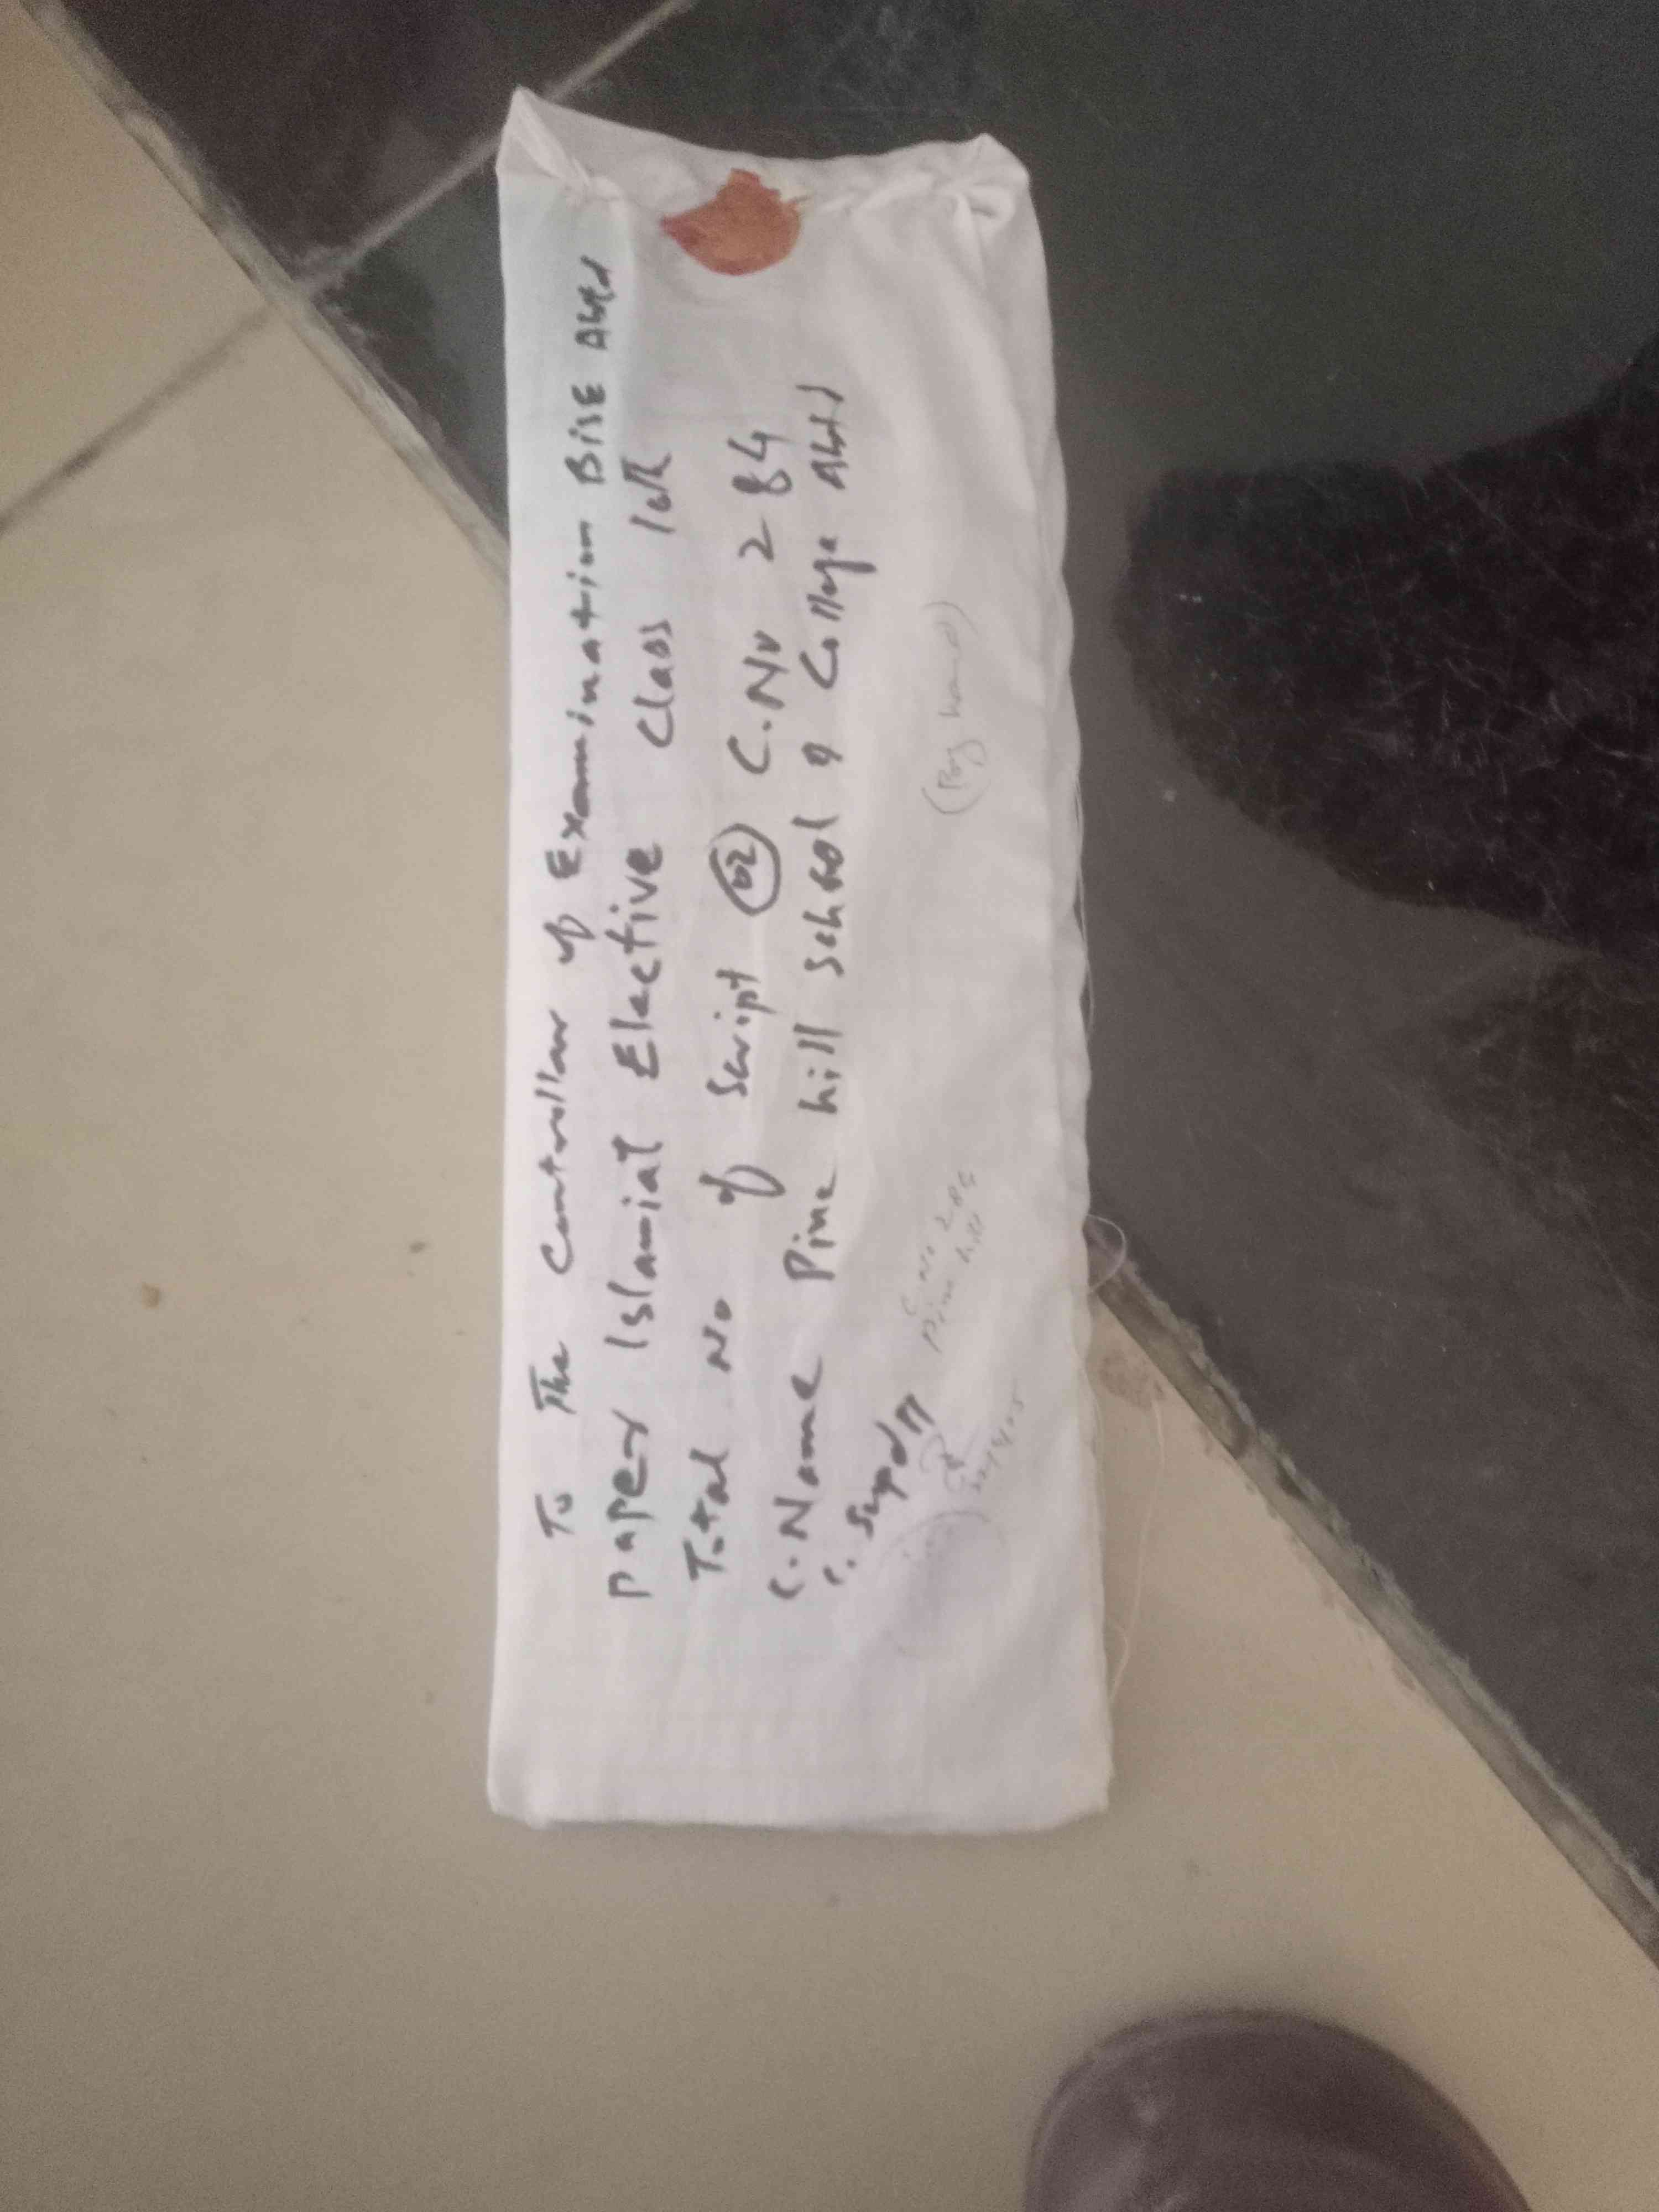 To The Controllar of Examination BISE Atd
Paper Islamiat Elective Class 10th
Total No of Script 02 C.No 284
C.Name Pine hill school & College Atd
C. Supdtt
(By hand)
C.No 284
Pine hill